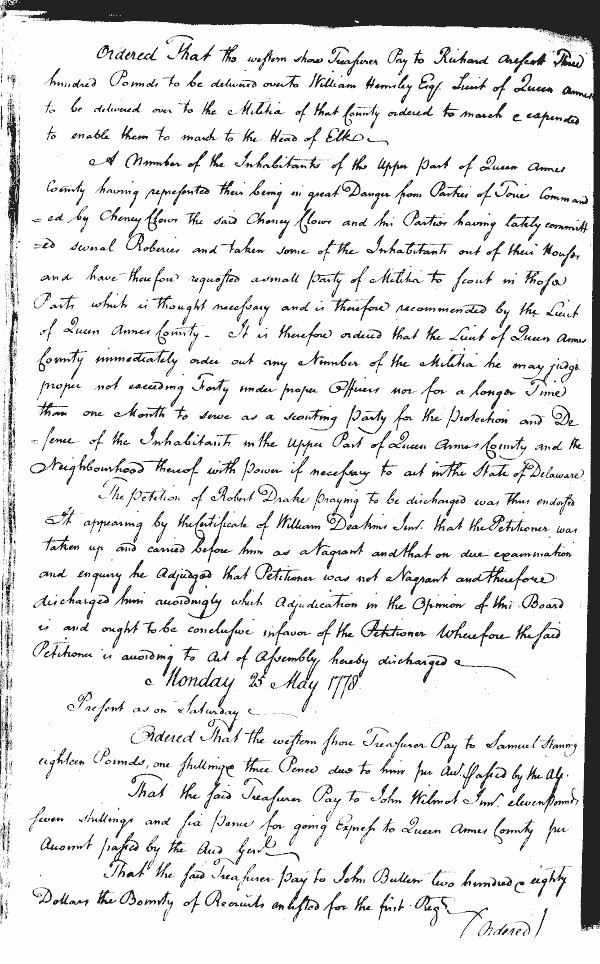 Ordered That the western shore Treasurer Pay to Richard Three
hundred Pounds to be delivered over to William Hemsley Esqr. Lieut of Queen Annes
to be delivered over to the Militia of that County ordered to march & expended
to enable them to march to the Head of Elk
A Number of the Inhabitants of the Upper Part of Queen Annes
County having represented their being in great Danger from Parties of Tories Command
=ed by Cheney Clows the said Cheney Clows and his Parties having lately committ
=ed several Roberies and taken some of the Inhabitants out of their Houses
and have therefore requested a small Party of Militia to scout in those
Parts which is thought necessary and is therefore recommended by the Lieut
of Queen Annes County - It is therefore ordered that the Lieut of Queen Annes
County immediately order out any Number of the Militia he may judge
proper not exceeding Forty under proper Officers nor for a longer Time
than one Month to serve as a scouting Party for the Protection and De
-fence of the Inhabitants in the Upper Part of Queen Annes County and the
Neighbourhood thereof with power if necessary to act in the State of Delaware
The Petition of Robert Drake praying to be discharged was thus endorsed
It appearing by the Certificate of William Deakins Junr. that the Petitioner was
taken up and carried before him as a Vagrant and that on due examination
and enquiry he Adjudged that Petitioner was not a Vagrant and therefore
discharged him accordingly which Adjudication in the Opinion of this Board
is and ought to be conclusive in favor of the Petitioner Wherefore the said
Petitioner is according to Act of Assembly hereby discharged
Monday 25 May 1778
Present as on Saturday
Ordered That the western shore Treasurer Pay to Samuel
eighteen Pounds, one shilling & three Pence due to him per Acct. passed by the
That the said Treasurer Pay to John Wilmot Junr. eleven pounds
seven shillings and six pence for going Express to Queen Annes County per
Account passed by the Aud Genl
That the said Treasurer pay to John Bullen two hundred & eighty
Dollars the Bounty of Recruits enlisted for the first Regt
(Ordered)